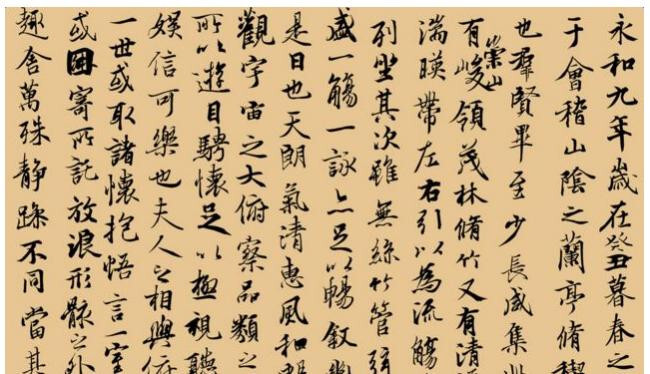 永和九年歲在癸丑暮春之
于會稽山陰之蘭亭脩禊
也羣賢畢至少長咸集此
有崇山峻領茂林脩竹又有清
湍暎帶左右引以為流觴
列坐其次雖無絲竹管弦
盛一觴一詠亦足以暢叙幽
是日也天朗氣清惠風和暢
觀宇宙之大俯察品類之
所以遊目騁懷足以極視聽
娛信可樂也夫人之相與俯
一世或取諸懷抱悟言一室
或因寄所託放浪形骸之外
趣舍萬殊静躁不同當其